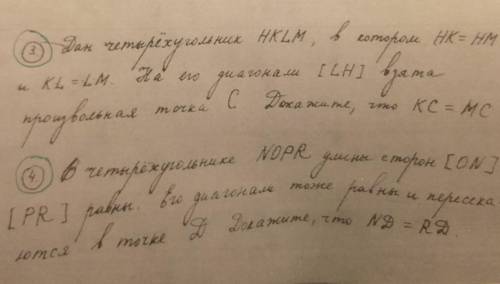 3. Дан четырёхугольник HKLM, в котором HK=HM
и KL=LM. На его диагонали [LH] взята
произвольная точка C Докажите, что KC=MC.
4. В четырёхугольнике NOPR длины сторон [ON]
[PR] равны. Его диагонали тоже равны и пересека
ются в точке D Докажите, что ND=RD.